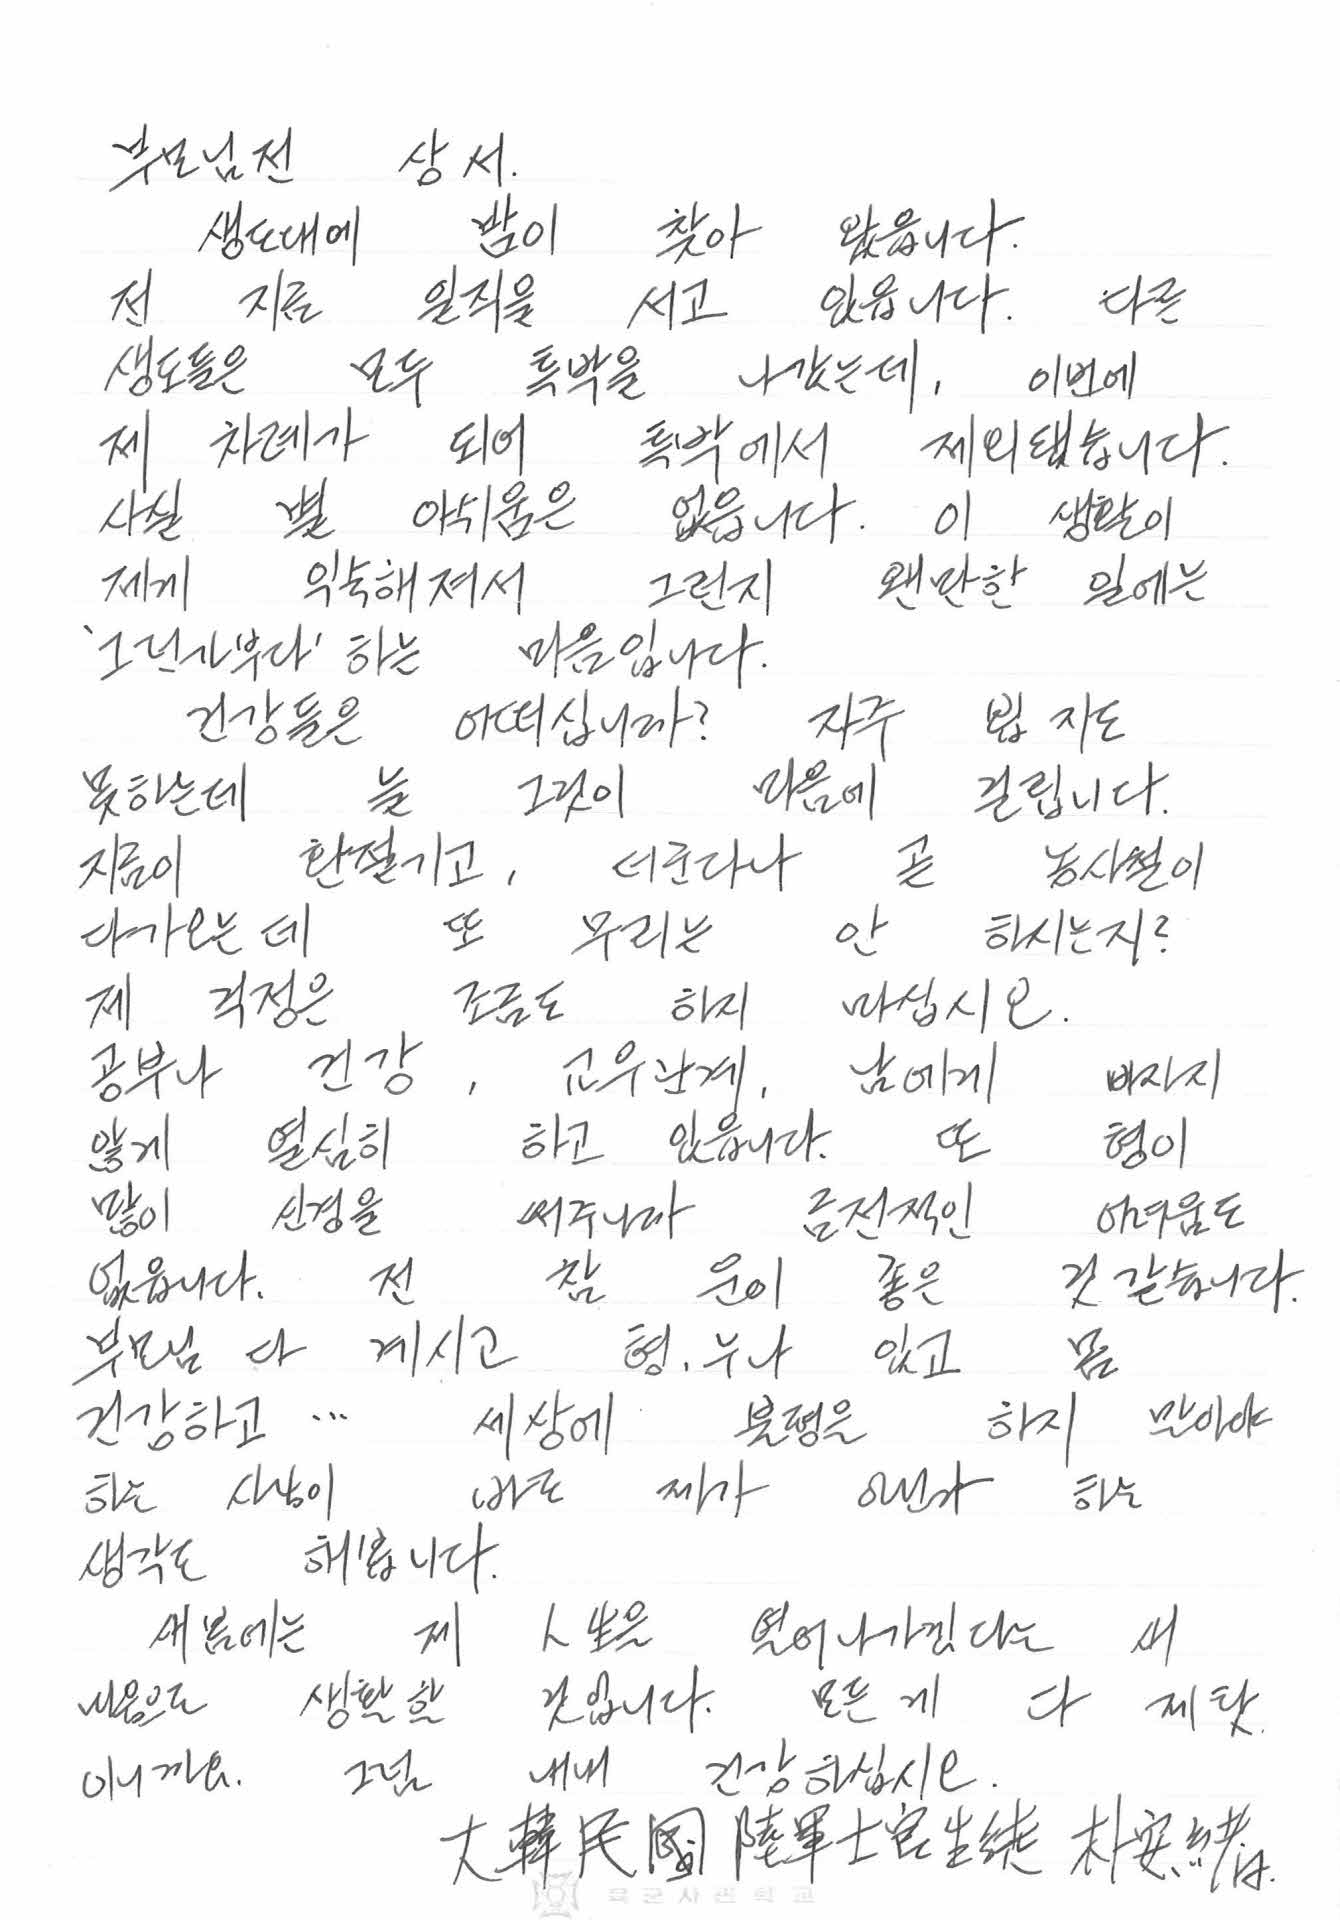 부모님전 상서.
생도대에 밤이 찾아 왔읍니다.
전 지금 일직을 서고 있읍니다. 다른
생도들은 모두 특박을 나갔는데, 이번에
제 차례가 되어 특박에서 제외됐습니다.
사실 별 아쉬움은 없읍니다. 이 생활이
제게 익숙해져서 그런지 왠만한 일에는
'그런가부다' 하는 마음입니다.
건강들은 어떠십니까? 자주 뵙지도
못하는데 늘 그것이 마음에 걸립니다.
지금이 환절기고, 더군다나 곧 농사철이
다가오는데 또 무리는 안 하시는지?
제 걱정은 조금도 하지 마십시오.
공부나 건강, 교우관계, 남에게 빠지지
않게 열심히 하고 있읍니다. 또 형이
많이 신경을 써주니까 금전적인 어려움도
없읍니다. 전 참 운이 좋은 것 같습니다.
부모님 다 계시고 형.누나 있고 몸
건강하고 … 세상에 불평을 하지 말아야
하는 사람이 바로 제가 아닌가 하는
생각도 해봅니다.
새봄에는 제 人生을 열어나가겠다는 새
마음으로 생활할 것입니다. 모든게 다 제 탓
이니까요. 그럼 내내 건강하십시오.
大韓民國 陸軍士官生徒 朴安緖
육군사관학교